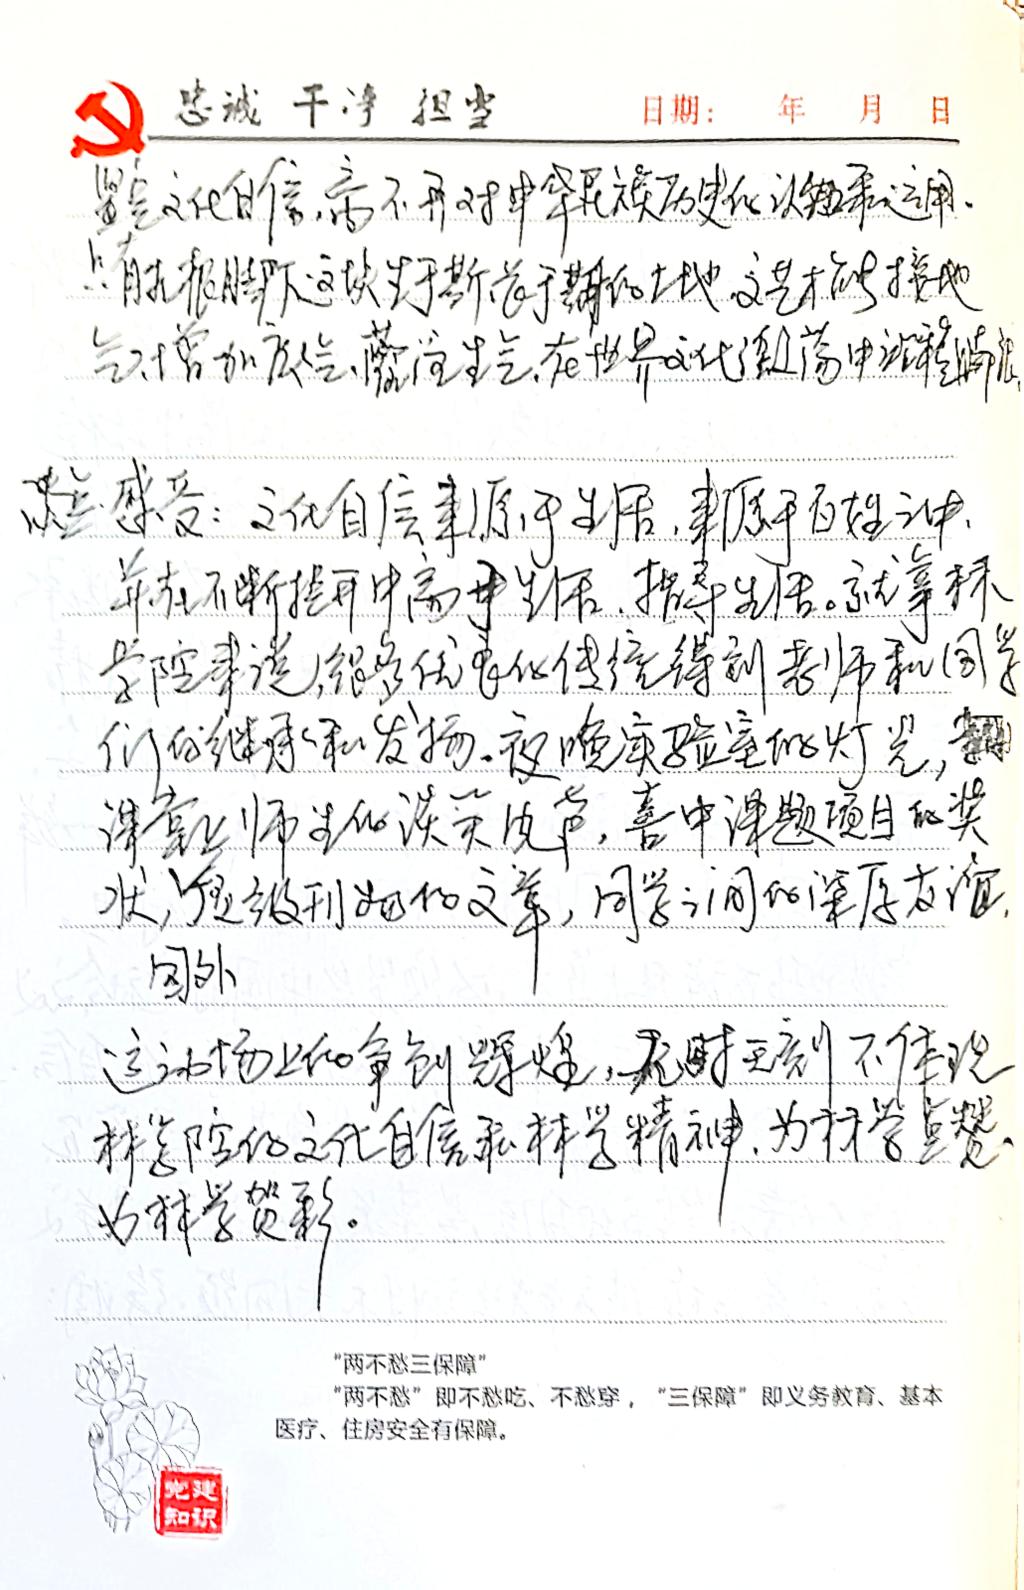 忠诚 干净 担当
日期： 年 月 日
坚定文化自信，离不开对中华民族历史的认知和运用。
只有扎根脚下这块生于斯、长于斯的土地，文艺才能接地
气、增加底气、灌注生气，在世界文化激荡中站稳脚跟。
感受：文化自信来源于生活，来源于百姓之中，
并在不断提升中高于生活、指导生活。就拿林
学院来说，很多优良的传统得到老师和同学
们的继承和发扬。夜晚实验室的灯光，
课堂上师生的谈笑风声，喜中课题项目的奖
状，顶级刊物的文章，同学之间的深厚友谊，
国外
运动场上的争创辉煌，无时无刻不体现
林学院的文化自信和林学精神，为林学点赞。
为林学贺彩。
“两不愁三保障”
“两不愁”即不愁吃、不愁穿，“三保障”即义务教育、基本
医疗、住房安全有保障。
党建
知识